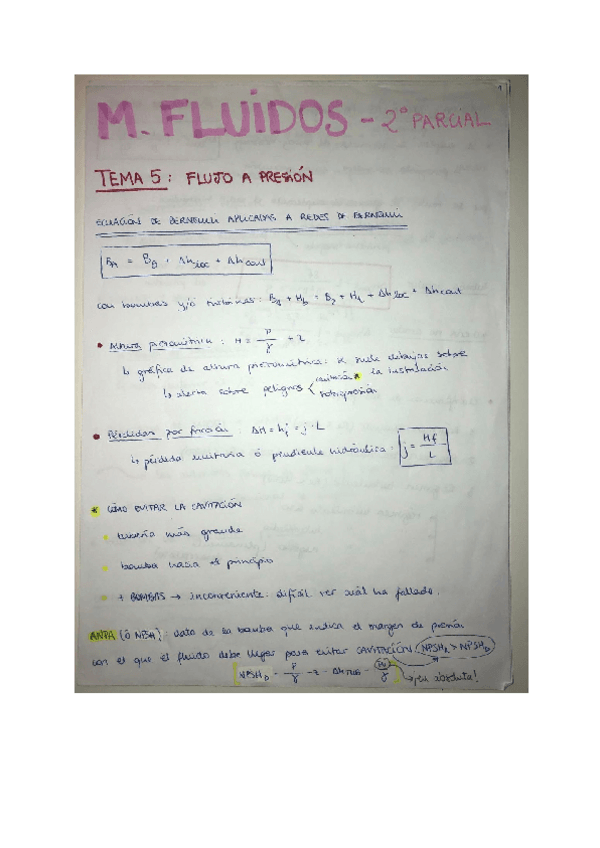 1
M. FLUÍDOS - 2º PARCIAL
TEMA 5: FLUJO A PRESIÓN
ECUACIÓN DE BERNOULLI APLICADAS A REDES DE
B_A = B_B + Δh_loc + Δh_cont
con bombas y/o turbinas: B_1 + H_b = B_2 + H_t + Δh_loc + Δh_cont
• Altura piezométrica: H = P/γ + z
↳ gráfica de altura piezométrica: se suele dibujar sobre la instalación
↳ alerta sobre peligros < cavitación* sobrepresión
• Pérdidas por fricción: ΔH = h_f = j · L
↳ pérdida unitaria ó pendiente hidráulica: j = H_f/L
* CÓMO EVITAR LA CAVITACIÓN
tubería más grande
bomba hacia el principio
+ BOMBAS → inconveniente: difícil ver cuál ha fallado.
ANPA (Ó NPSH): dato de la bomba que indica el margen de presión
con el que el fluido debe llegar para evitar CAVITACIÓN.
NPSH_D = P/γ - z - - /γ → ¡en absoluta!